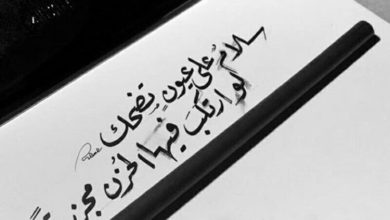 سلامٌ على عيونٍ تضحك
لو ارتكب فيها الحُزن مجزرة